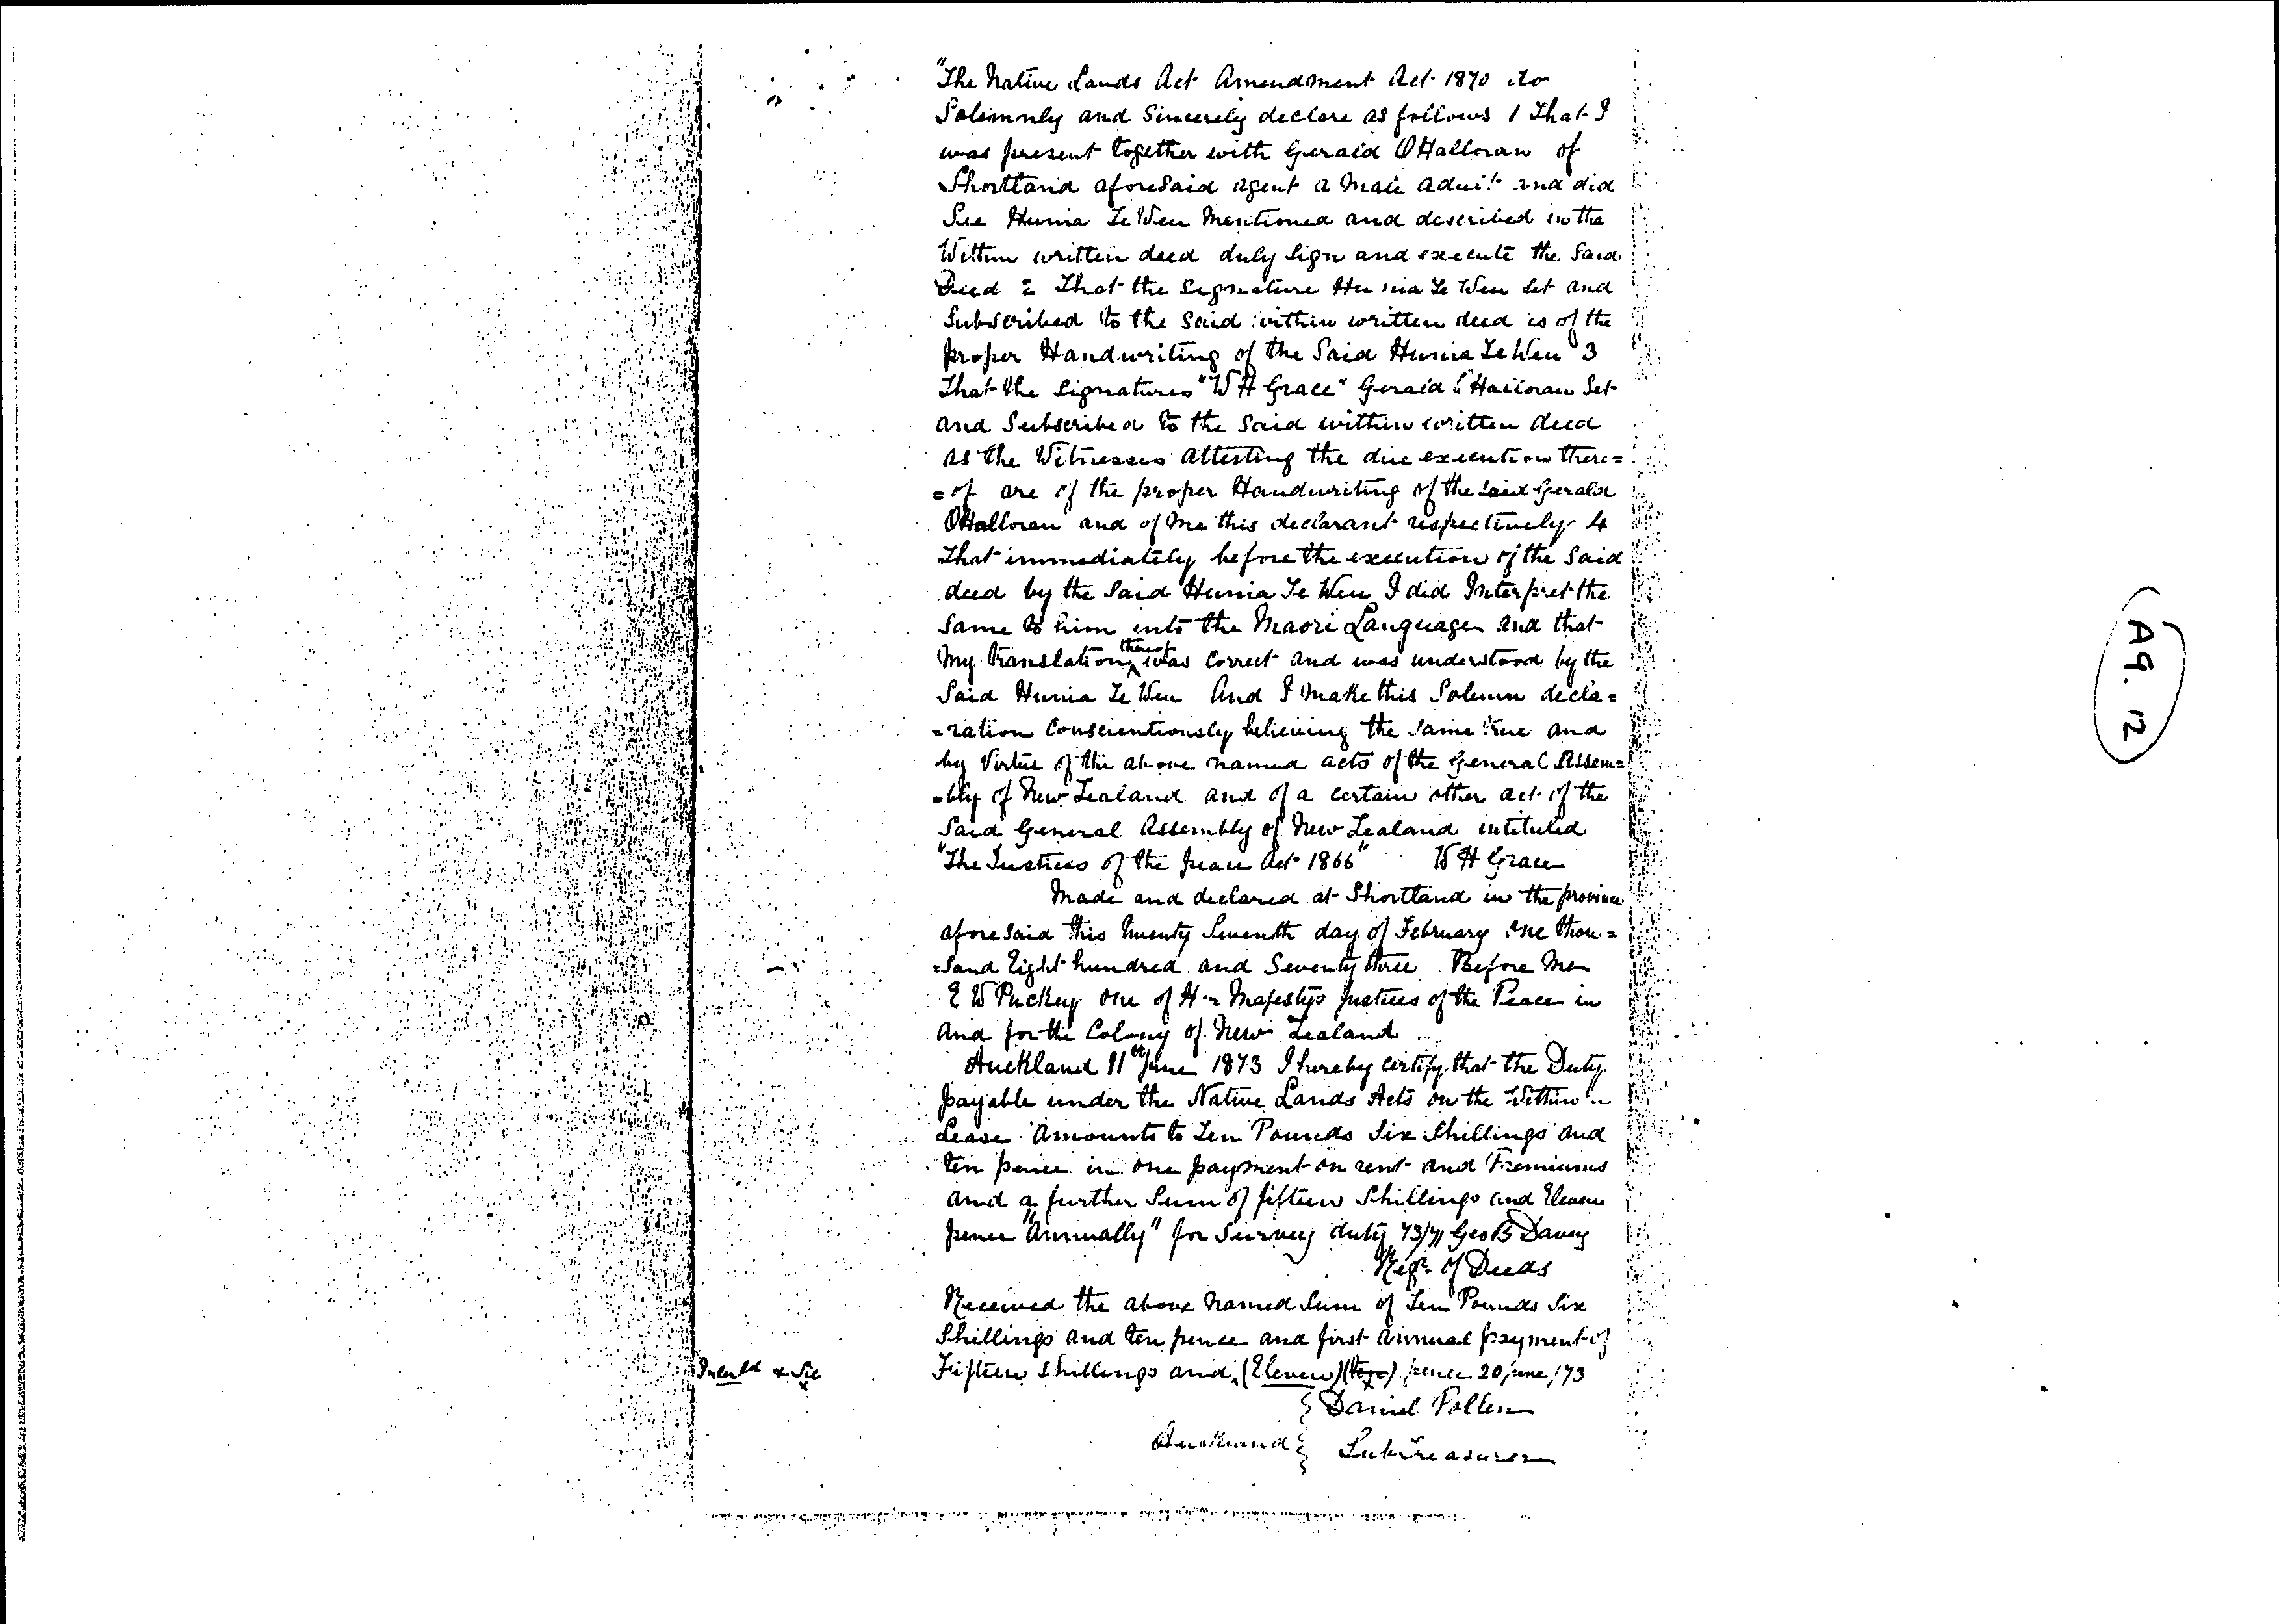 "The Native Lands Act Amendment Act 1870 do
Solemnly and Sincerely declare as follows 1 That I
was present together with Gerald O'Halloran of
Shortland aforesaid agent a Male Adult and did
See Hunia Te Weu Mentioned and described in the
Within written deed duly Sign and execute the Said
Deed 2 That the Signature Hunia Te Weu Set and
Subscribed to the Said within written deed is of the
proper Handwriting of the Said Hunia Te Weu 3
That the Signatures "W H Grace" Gerald O'Halloran Set
and Subscribed to the Said within written deed
as the Witnesses attesting the due execution there=
=of are of the proper Handwriting of the Said Gerald
O'Halloran and of me this declarant respectively 4
That immediately before the execution of the Said
deed by the Said Hunia Te Weu I did Interpret the
Same to him into the Maori Language and that
My translation thereof was Correct and was understood by the
Said Hunia Te Weu And I Make this Solemn decla=
=ration Conscientiously believing the Same true and
by Virtue of the above named acts of the General Assem=
=bly of New Zealand and of a certain other act of the
Said General Assembly of New Zealand intituled
"The Justices of the peace Act 1866" W H Grace
Made and declared at Shortland in the province
aforesaid this twenty Seventh day of February one thou=
=sand Eight hundred and Seventy three Before Me
E W Puckey one of Her Majesty's Justices of the Peace in
and for the Colony of New Zealand
Auckland 11th June 1873 I hereby certify that the Duty
payable under the Native Lands Acts on the Within
Lease Amounts to Ten Pounds Six Shillings and
ten pence in one payment on rent and Premiums
and a further Sum of fifteen Shillings and Eleven
pence "Annually" for Survey duty 73/71 Geo B Davey
Regr. of Deeds
Received the above named Sum of Ten Pounds Six
Shillings and ten pence and first annual payment of
Fifteen Shillings and (Eleven) (ten) pence 20 June /73
Daniel Pollen
Auckland Sub Treasurer
A9. 12